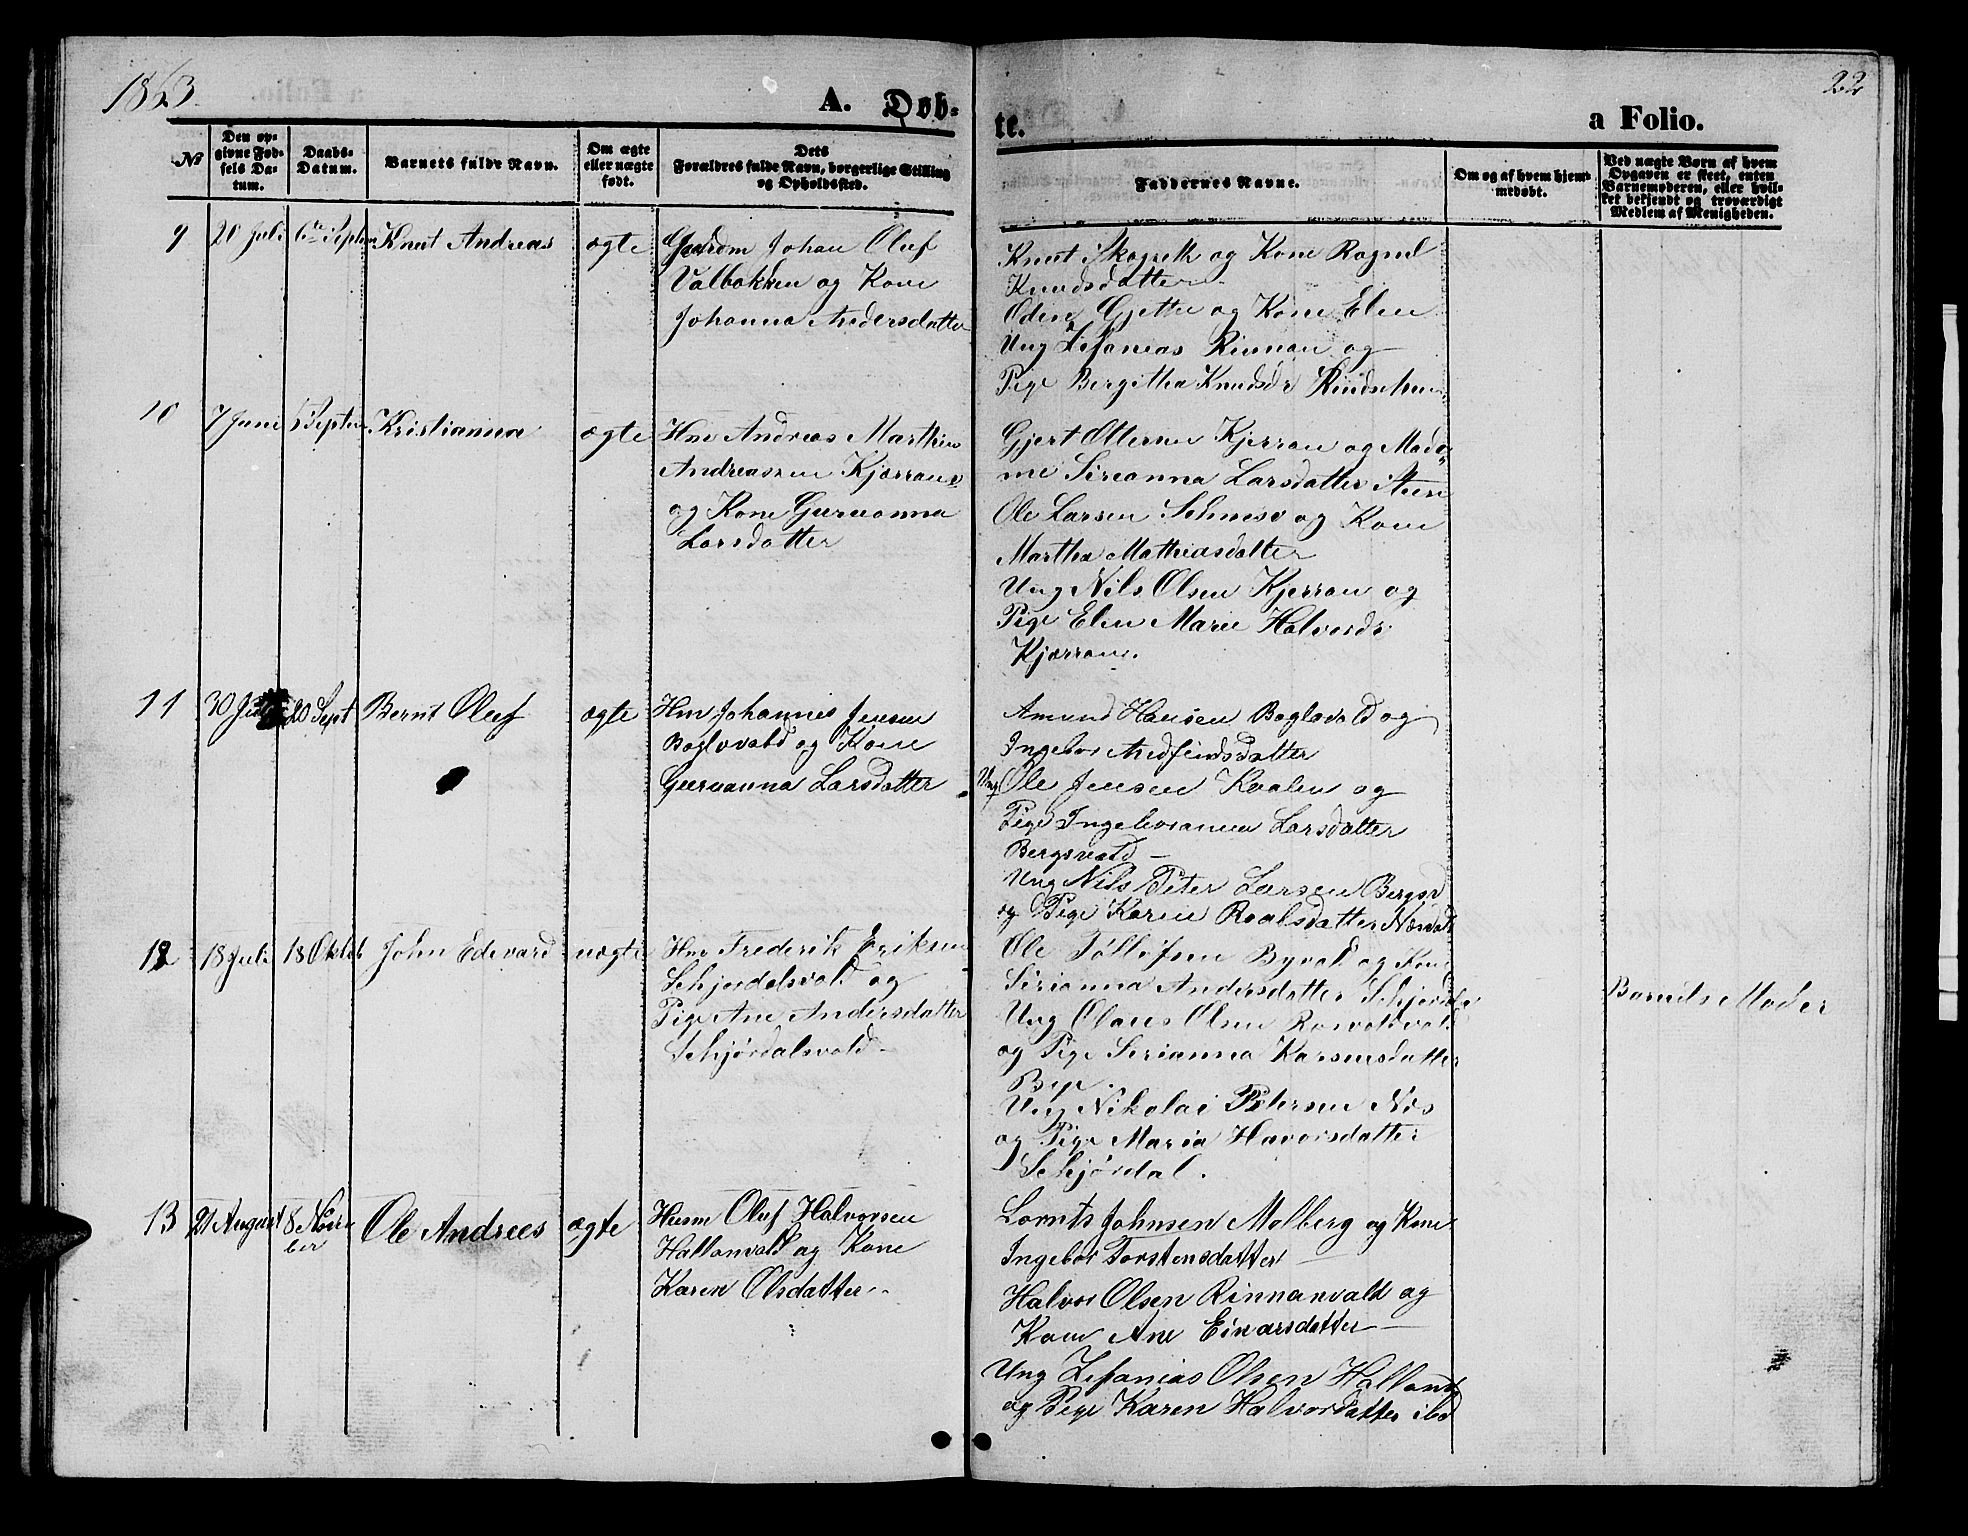 1863
A. Døb-
te.
a Folio.
22
No
Den op-
givne Fød-
sels Da-
tum.
Daabs-
Datum.
Barnets fulde Navn.
Om ægte
eller uægte
født.
Dets
Forældres fulde Navn, borgerlige Stilling
og Opholdssted.
Faddernes Navne.
Om og af hvem hjem-
medøbt.
Ved uægte Børn af hvem
Opgaven er skeet, enten
Barnemoderen, eller hvil-
ket bekjendt og troværdigt
Medlem af Menigheden.
9
20 Juli
6te Septem
Knut Andreas
ægte
Johan Oluf
Valbakken og Kone
Johanna Andersdatter
Knut og Kone Ragnel
Knudsdatter
Odin Gjette og Kone Elen
Ung Zefanias Rinnan og
Pige Bergitha Knudsdr
10
7 Juni
Septem
Kristianna
ægte
Hm Andreas Marthin
Andreassen Kjærran
og Kone Guruanna
Larsdatter
Gjert Ottersen Kjerran og Mada-
me Sirianna Larsdatter
Ole Larsen og Kone
Martha Mathiasdatter
Ung Nils Olsen Kjerran og
Pige Elen Marie Halvorsdr
Kjærran.
11
30
20 Sept
Bernt Oluf
ægte
Hm Johannes Jensen
Boglovald og Kone
Guruanna Larsdatter
Amund HansenBoglovald og
Ingebor Andfindsdatter
Ung Ole Jensen Kvalen og
Pige Ingeboranna Larsdatter
Bergsvald
Ung Nils Peter Larsen Bergsv
og Pige Karen Roalsdatter
12
18 Juli
18 Oktob
John Edevard
uægte
Hm Frederik Eriksen
Schjerdalsvald og
Pige Ane Andersdatter
Schjørdalsvald
Ole Tollefsen Byvald og Kone
Sirianna Andersdatter
Ung Olaus Olsen
og Pige Serianna
Bye.
Ung Nikolai Petersen Næs
og Pige Maria Havorsdatter
Schjørdal.
Barnets Moder
13
21 August
8 Novem
ber
Ole Andreas
ægte
Husm Oluf Halvorsen
Hallanvald og Kone
Karen Olsdatter
Lornts Johnsen Molberg og Kone
Ingebor Torstensdatter
Halvor Olsen Rinnanvald og
Kone Ane Einarsdatter
Ung Zefanias Olsen
og Pige Karen Halvorsdatter ibd